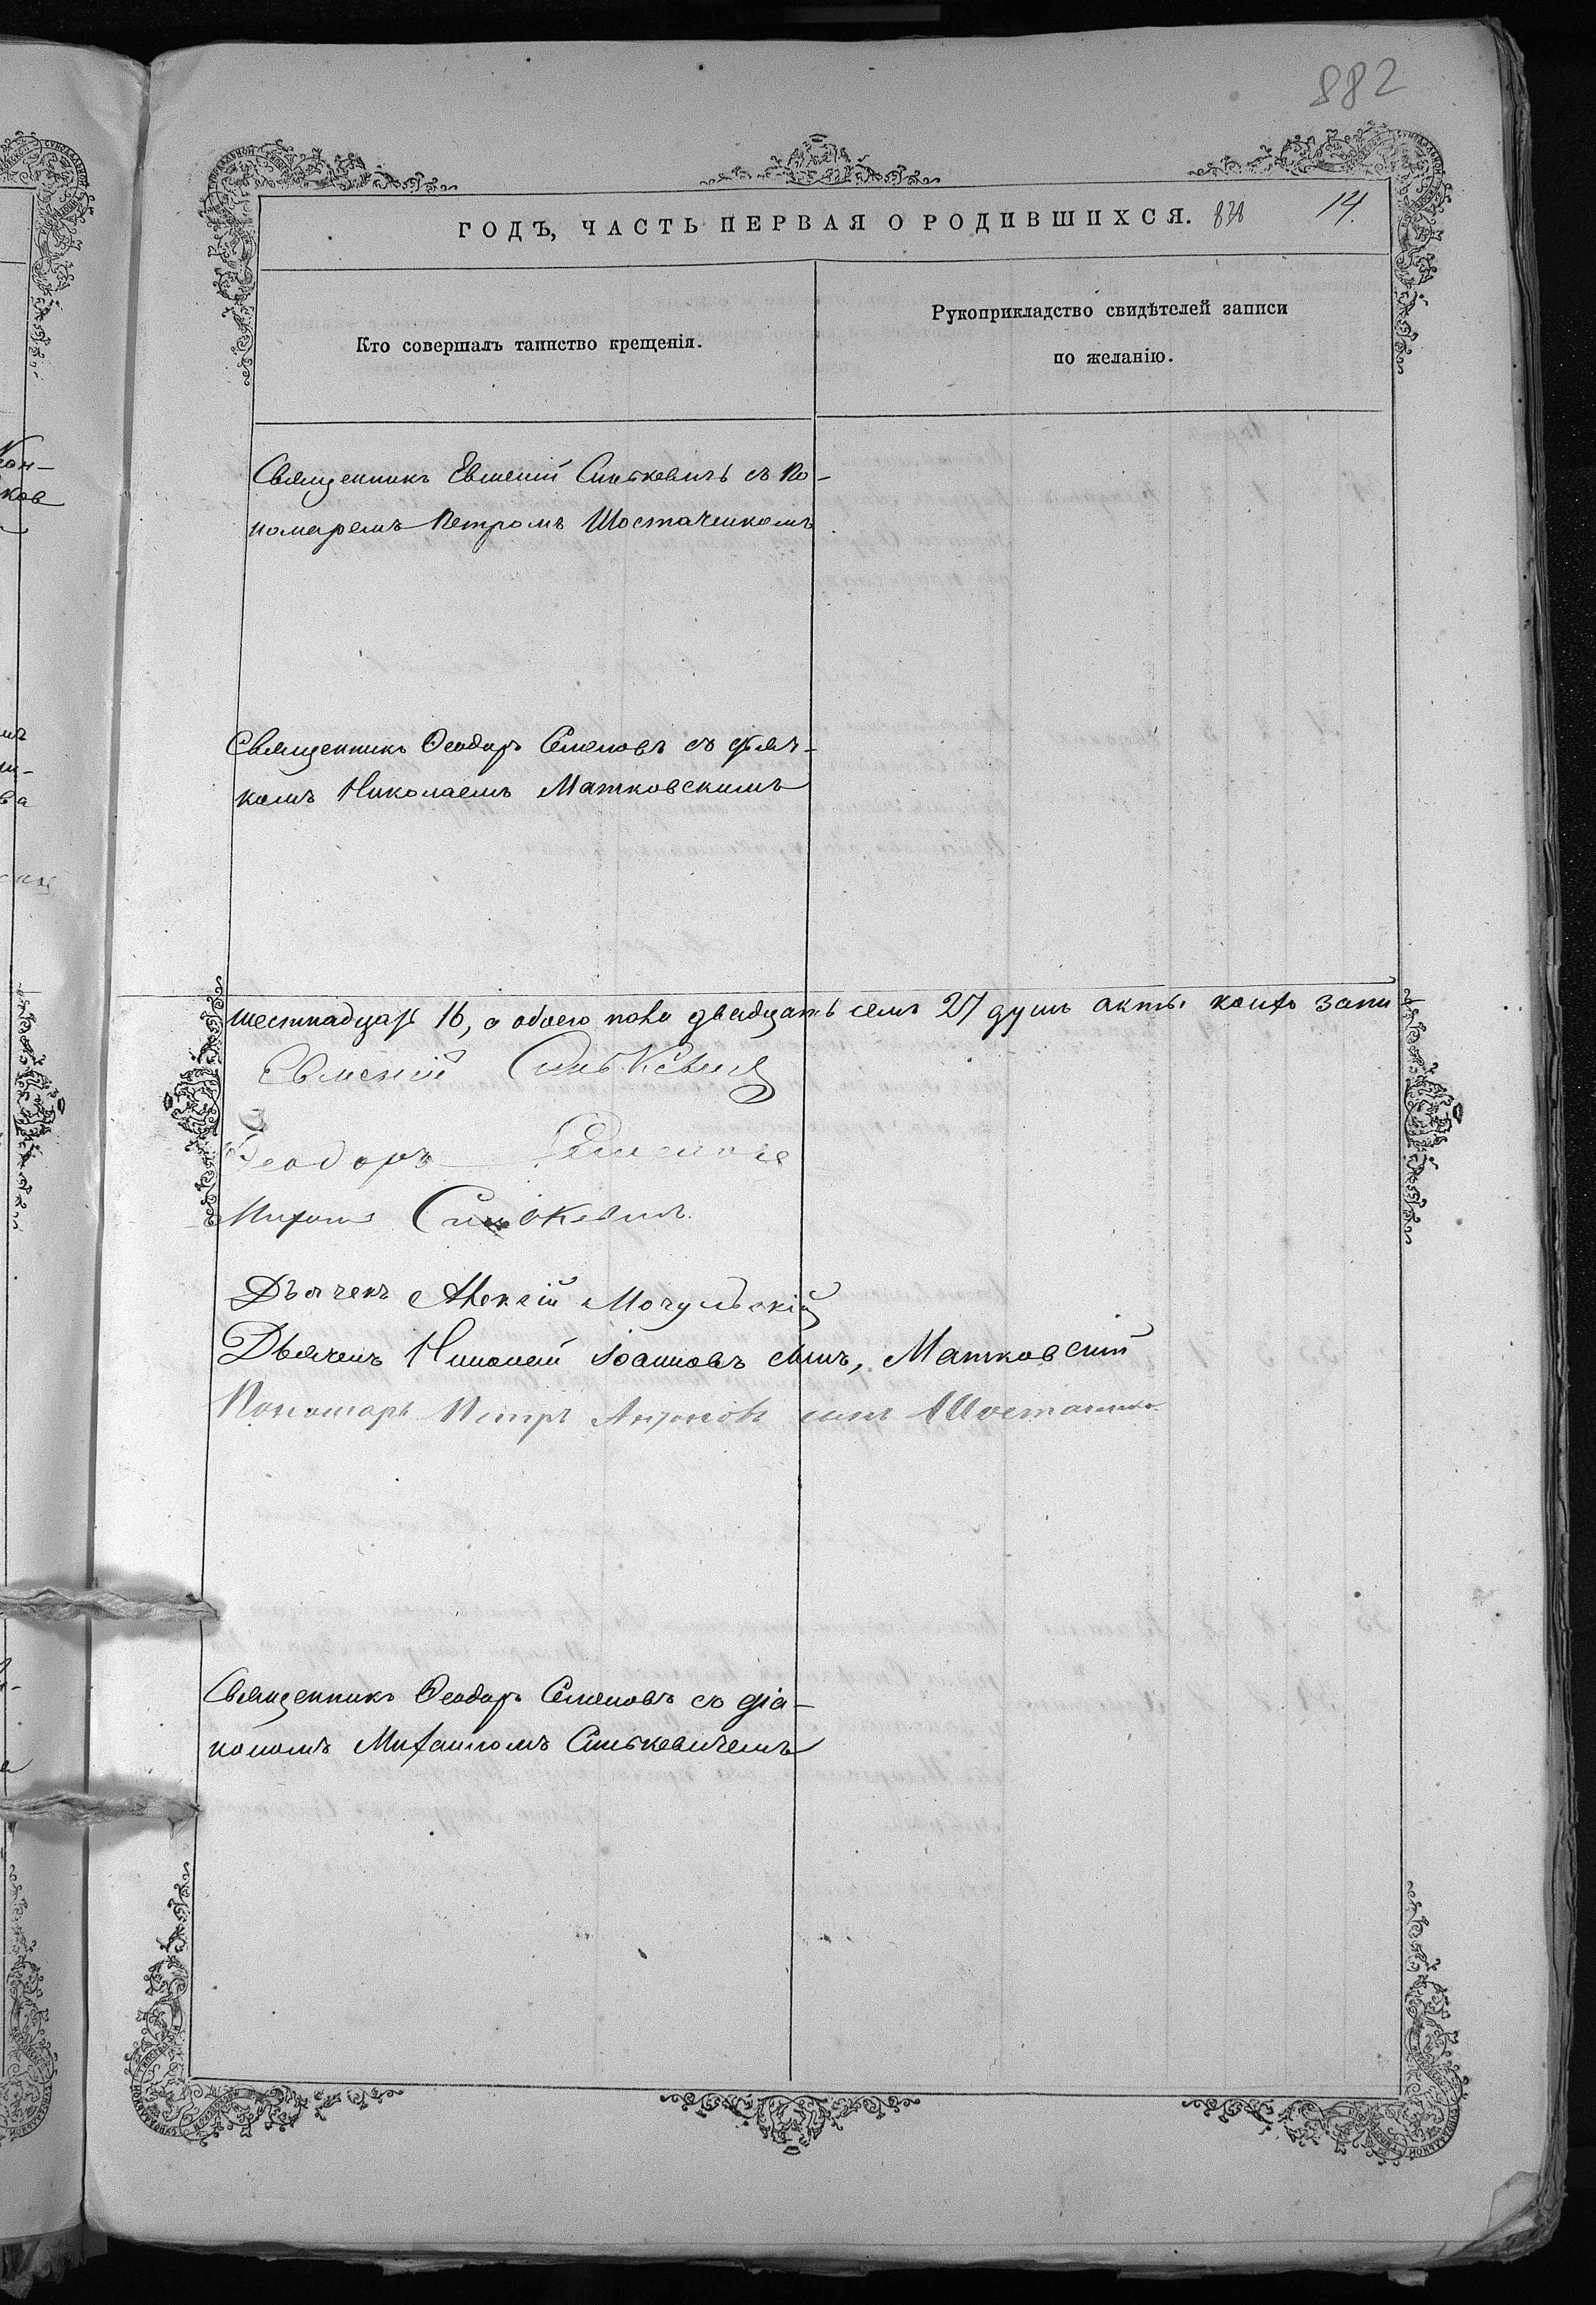 882
ГОДЪ, ЧАСТЬ ПЕРВАЯ О РОДИВШИХСЯ. 838 14.
Кто совершалъ таинство крещенія.
Рукоприкладство свидѣтелей записи
по желанію.
Священникъ Евменій Синькевичъ съ По-
номаремъ Петромъ Шостаченкомъ
Священникъ Ѳеодоръ Семеновъ съ дьяч-
комъ Николаемъ Матковскимъ
шестнадцать 16, а обоего пола двадцать семь 27 душъ акты коихъ запи-
Евменій Синькевичъ
Ѳеодоръ Семеновъ
Михаилъ Синькевичъ
Дьячекъ Алексій Мочульскій
Дьячекъ Николай Іоанновъ сынъ, Матковскій
Пономарь Петръ Антоновъ сынъ Шостаченко
Священникъ Ѳеодоръ Семеновъ съ діа-
кономъ Михаиломъ Синькевичемъ